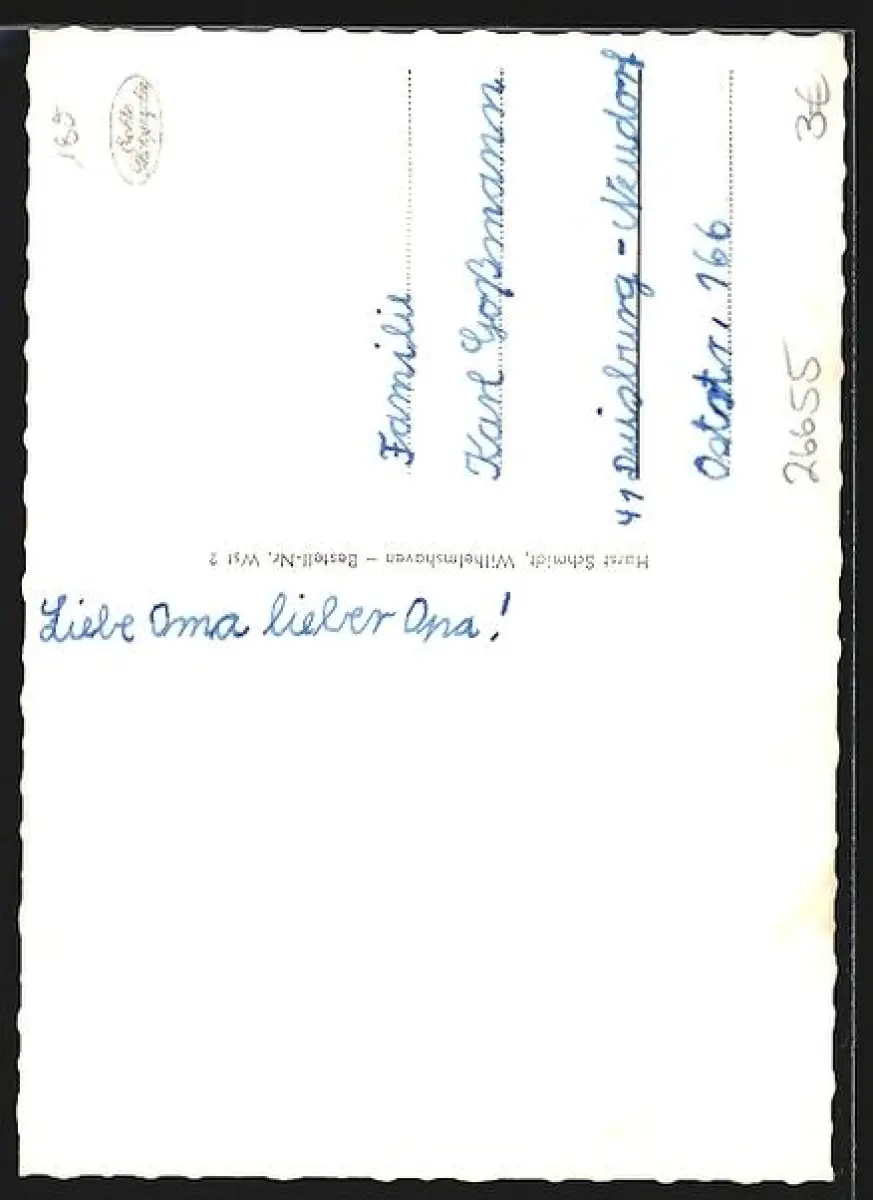 Familie
Karl Goßmann
41 Duisburg - Neudorf
Oststr. 166
Horst Schmidt, Wilhelmshaven – Bestell-Nr. Wst 2
Liebe Oma lieber Opa!
Echte
3€
26655